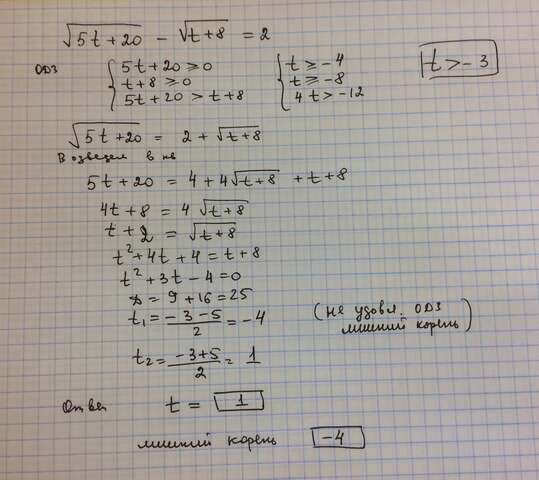 √5t+20 − √t+8 = 2
ОДЗ { 5t+20 ≥ 0 { t ≥ −4 t > −3
t+8 ≥ 0 t ≥ −8
5t+20 > t+8 4t > −12
√5t+20 = 2 + √t+8
Возведем в
5t+20 = 4+4√t+8 + t+8
4t+8 = 4 √t+8
t+2 = √t+8
t²+4t+4 = t+8
t²+3t−4=0
D = 9+16=25
t₁ = (−3−5)/2 = −4 (не удовл. ОДЗ
лишний корень)
t₂ = (−3+5)/2 = 1
Ответ t = 1
лишний корень −4